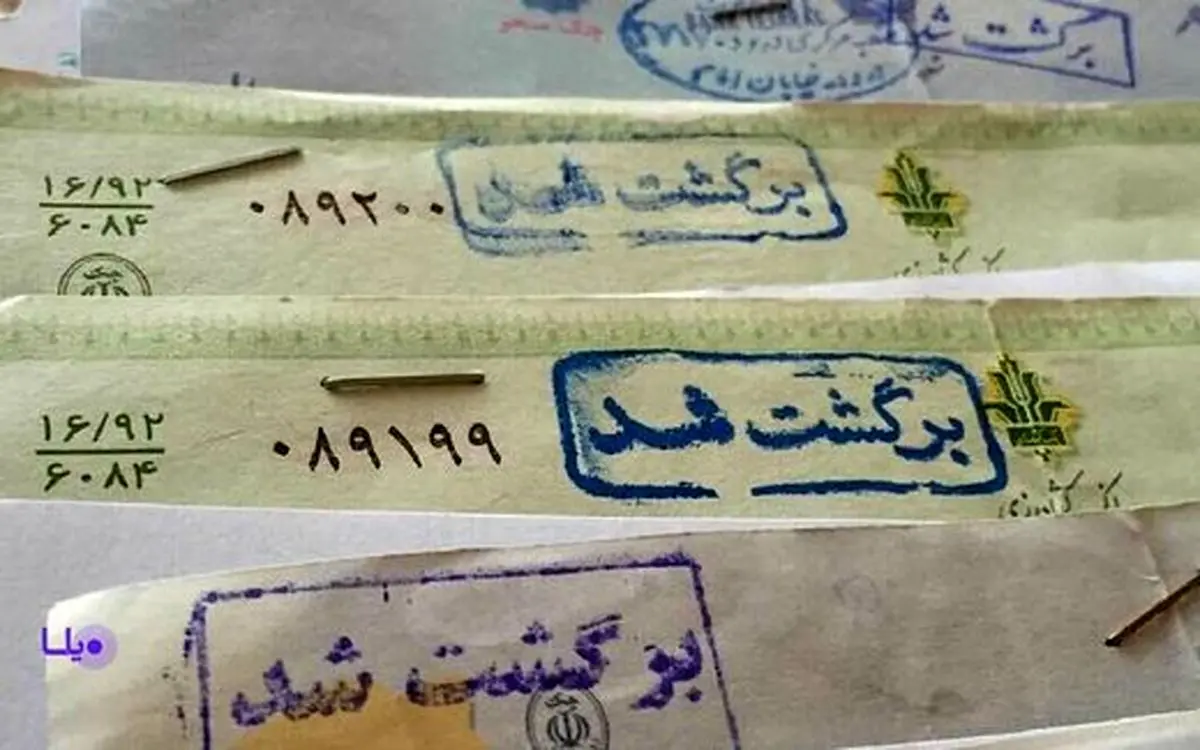 برگشت شد
خیابان
۱۶/۹۲
۶۰۸۴
۰۸۹۲۰۰
برگشت شد
چک
۱۶/۹۲
۶۰۸۴
۰۸۹۱۹۹
برگشت شد
کشاورزی
یلدا
برگشت شد
چک